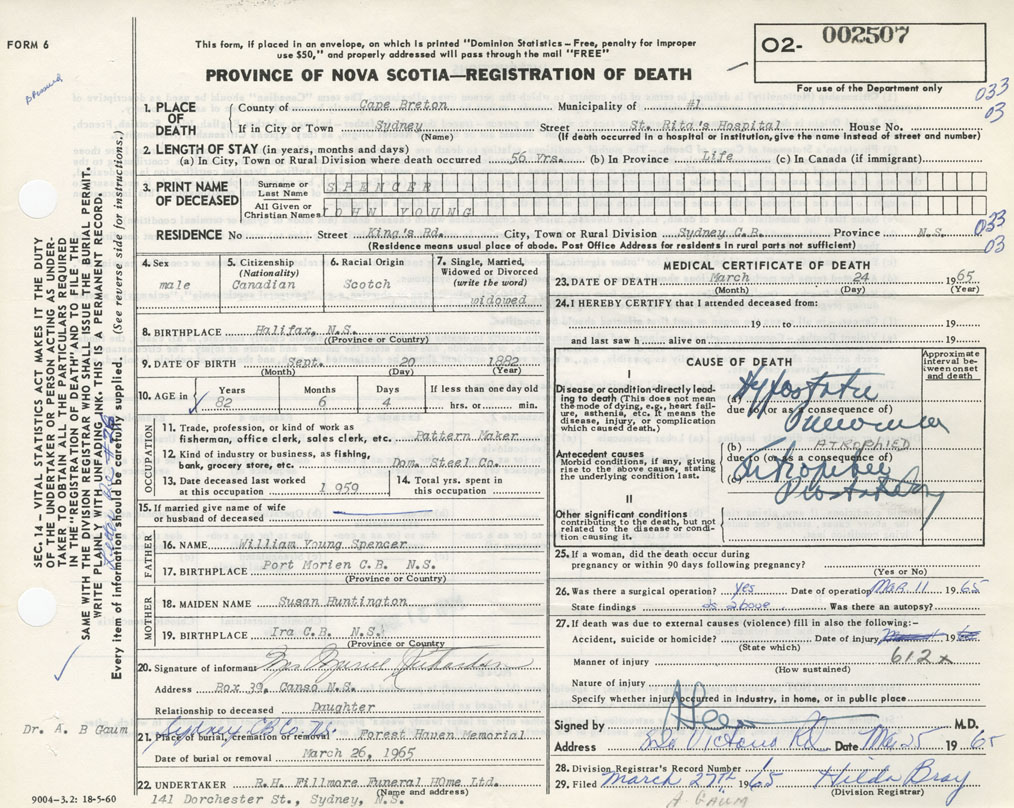 FORM 6
This form, if placed in an envelope, on which is printed "Dominion Statistics – Free, penalty for improper
use $50," and properly addressed will pass through the mail "FREE"
02- 002507
For use of the Department only
PROVINCE OF NOVA SCOTIA—REGISTRATION OF DEATH
033
03
1. PLACE OF DEATH
County of Cape Breton Municipality of #1
If in City or Town Sydney Street St. Rita's Hospital House No.
(Name) (If death occurred in a hospital or institution, give the name instead of street and number)
2. LENGTH OF STAY (in years, months and days)
(a) In City, Town or Rural Division where death occurred 56 Yrs. (b) In Province Life (c) In Canada (if immigrant)
3. PRINT NAME OF DECEASED
Surname or Last Name SPENCER
All Given or Christian Names JOHN YOUNG
RESIDENCE No Street King's Rd. City, Town or Rural Division Sydney C.B. Province N.S.
033
03
(Residence means usual place of abode. Post Office Address for residents in rural parts not sufficient)
4. Sex
male
5. Citizenship
(Nationality)
Canadian
6. Racial Origin
Scotch
7. Single, Married,
Widowed or Divorced
(write the word)
widowed
8. BIRTHPLACE Halifax, N.S.
(Province or Country)
9. DATE OF BIRTH Sept. 20 1882
(Month) (Day) (Year)
10. AGE in Years Months Days If less than one day old
82 6 4 hrs. or min.
OCCUPATION
11. Trade, profession, or kind of work as
fisherman, office clerk, sales clerk, etc. Pattern Maker
12. Kind of industry or business, as fishing,
bank, grocery store, etc. Dom. Steel Co.
13. Date deceased last worked
at this occupation 1959
14. Total yrs. spent in
this occupation
15. If married give name of wife
or husband of deceased
FATHER
16. NAME William Young Spencer
17. BIRTHPLACE Port Morien C.B. N.S.
(Province or Country)
MOTHER
18. MAIDEN NAME Susan Huntington
19. BIRTHPLACE Ira C.B. N.S.
(Province or Country
20. Signature of informant Mrs
Address Box 39, Canso N.S.
Relationship to deceased Daughter
Sydney CB Co. N.S.
21. Place of burial, cremation or removal Forest Hanen Memorial
Date of burial or removal March 26, 1965
22. UNDERTAKER R.H. Fillmore Funeral HOme Ltd.
(Name and address)
141 Dorchester St., Sydney, N.S.
MEDICAL CERTIFICATE OF DEATH
23. DATE OF DEATH March 24 1965
(Month) (Day) (Year)
24. I HEREBY CERTIFY that I attended deceased from:
19 to 19
and last saw h alive on 19
CAUSE OF DEATH
Approximate
interval be-
tween onset
and death
I
Disease or condition directly lead-
ing to death (This does not mean
the mode of dying, e.g., heart fail-
ure, asthenia, etc. It means the
disease, injury, or complication
which caused death.)
(a) Hypostatic
due to (or as a consequence of)
Pneumonia
Antecedent causes
Morbid conditions, if any, giving
rise to the above cause, stating
the underlying condition last.
(b) ATROPHIED
due to (or as a consequence of)
(c)
II
Other significant conditions
contributing to the death, but not
related to the disease or condi-
tion causing it.
25. If a woman, did the death occur during
pregnancy or within 90 days following pregnancy?
(Yes or No)
26. Was there a surgical operation? yes Date of operation Mar 11 1965
State findings as above Was there an autopsy?
27. If death was due to external causes (violence) fill in also the following:-
Accident, suicide or homicide? Date of injury 19
(State which)
612x
Manner of injury
(How sustained)
Nature of injury
Specify whether injury occurred in industry, in home, or in public place
Signed by M.D.
Address Victoria Rd Date Mar 25 1965
28. Division Registrar's Record Number
29. Filed March 27th 1965 Hilda Bray
(Division Registrar)
A. GAUM
SEC. 14 – VITAL STATISTICS ACT MAKES IT THE DUTY
OF THE UNDERTAKER OR PERSON ACTING AS UNDER-
TAKER TO OBTAIN ALL THE PARTICULARS REQUIRED
IN THE "REGISTRATION OF DEATH" AND TO FILE THE
SAME WITH THE DIVISION REGISTRAR WHO SHALL ISSUE THE BURIAL PERMIT.
WRITE PLAINLY WITH UNFADING INK. THIS IS A PERMANENT RECORD.
Every item of information should be carefully supplied. (See reverse side for instructions.)
Dr. A. B Gaum
9004–3.2: 18-5-60